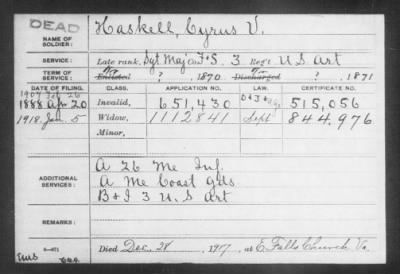 DEAD
NAME OF SOLDIER: Haskell, Cyrus V.
SERVICE: Late rank, Sgt Maj Co. F+S. 3 Reg't U S Art
TERM OF SERVICE: Enlisted ?, 1870 Discharged ?, 1871
DATE OF FILING. CLASS. APPLICATION NO. LAW. CERTIFICATE NO.
1907 Feb 26
1888 Apr 20 Invalid, 651,430 515,056
1918 Jan 5 Widow, 1112841 Sept 844,976
Minor,
ADDITIONAL SERVICES:
A 26 Me Inf.
A Me Coast gds
B+I 3 U.S Art
REMARKS:
Died Dec. 28, 1917, at E. Falls Church Va.